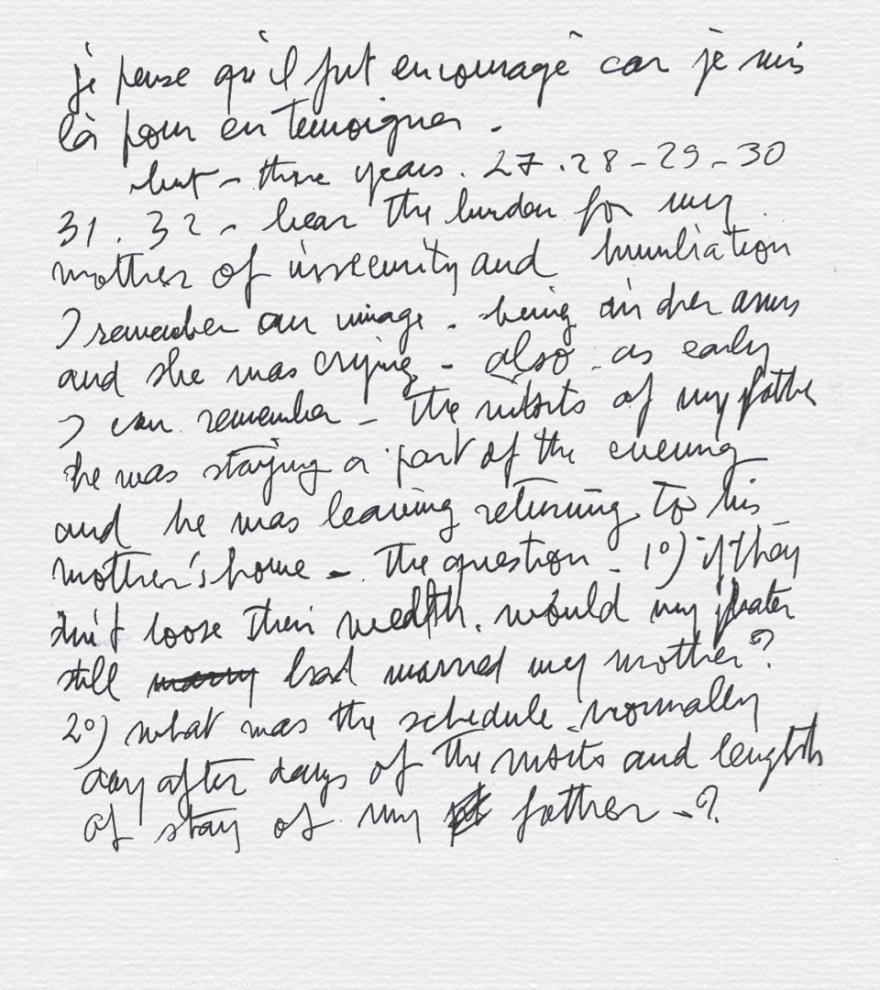 je pense qu'il fut encouragé car je suis
là pour en temoigner.
but – those years. 27.28–29–30
31.32 – bear the burden for my
mother of insecurity and humiliation
I remember an image. being in her arms
and she was crying – also as early
I can remember – the visits of my father
he was staying a part of the evening
and he was leaving returning to his
mother's home – The question – 1°) if they
didn't loose their wealth, would my father
still had married my mother?
2°) what was the schedule normally
day after days of the visits and length
of stay of my father –?